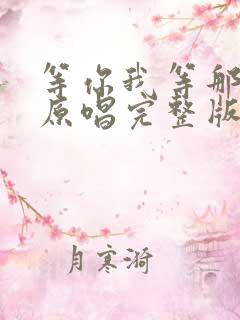 等你我等那
原唱完整版
月寒漪